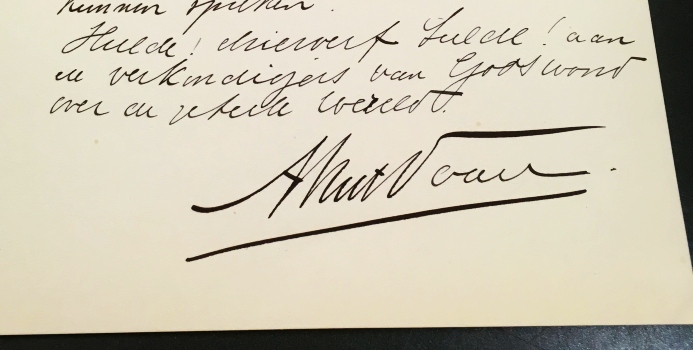 kunnen spreken.
Hulde! driewerf Hulde! aan
de verkondigers van Gods woord
over de geheele wereld.